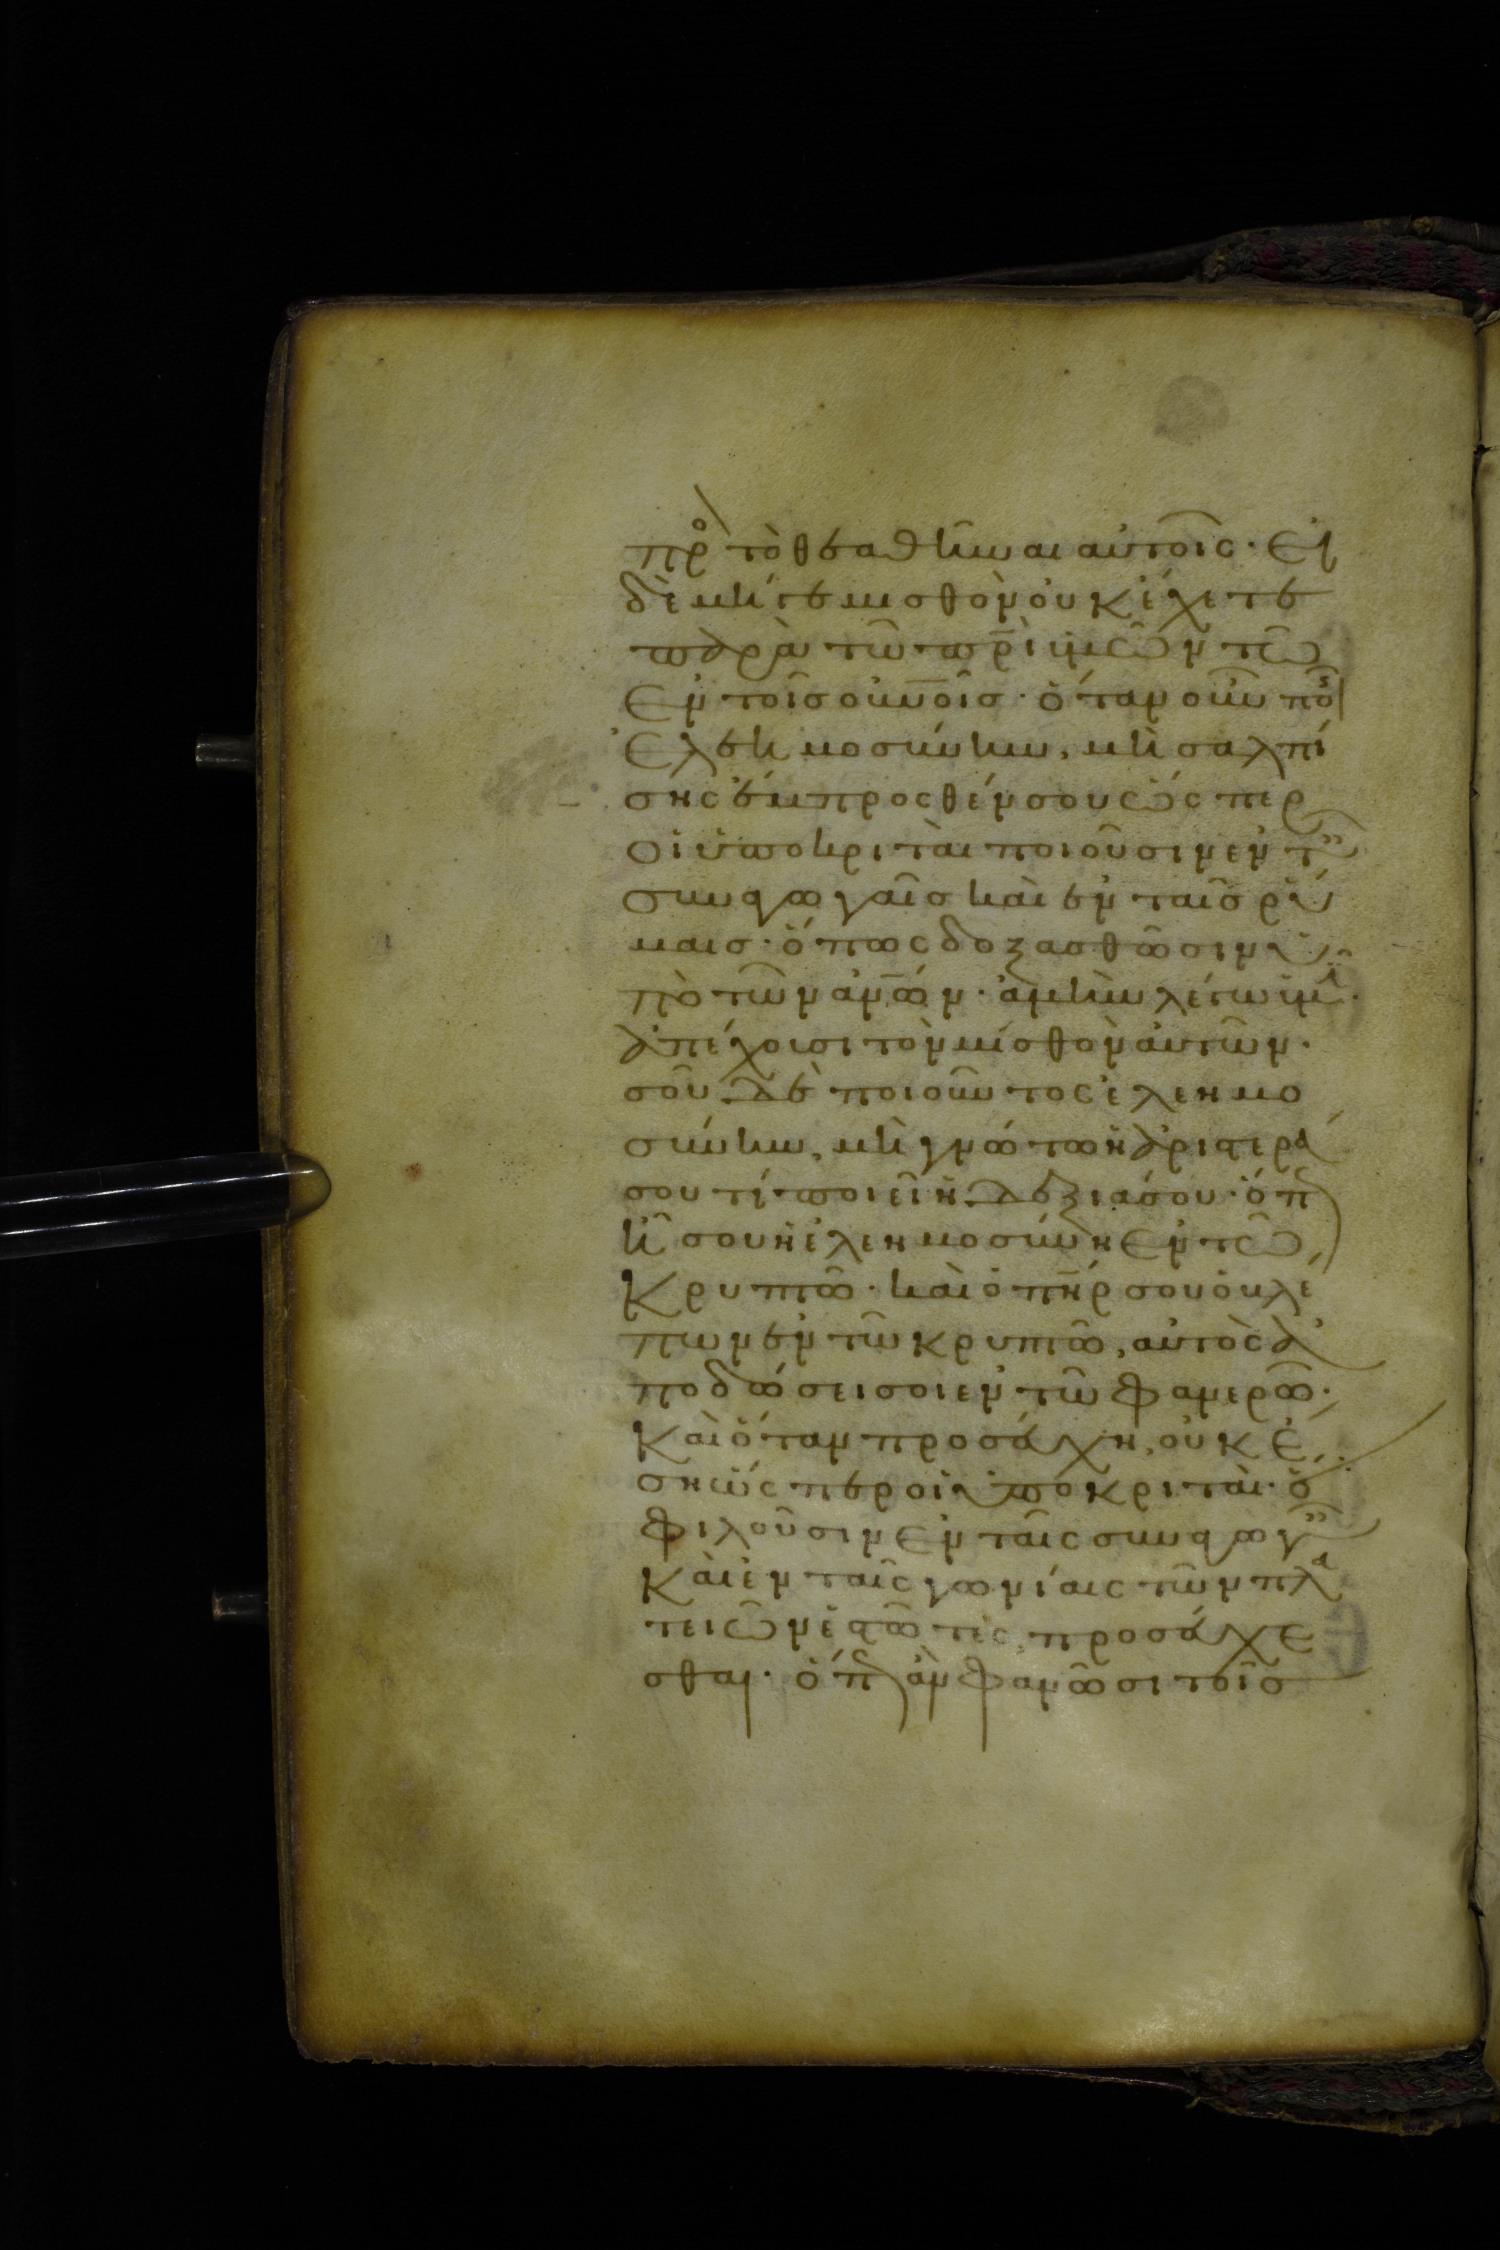 πρὸ τὸ θεαθῆναι αὐτοῖς· εἰ
δὲ μήγε μισθὸν οὐκ ἔχετε
παρὰ τῶ π̅ρ̅ι ὑμῶν τῶ
ἐν τοῖς οὐν̅οῖς· ὅταν οὖν ποι
ἐλεημοσύνην, μὴ σαλπί
σης ἔμπροσθέν σου ὥσπερ
οἱ ὑποκριταὶ ποιοῦσιν ἐν τ
συναγωγαῖς καὶ ἐν ταῖς ρύ
μαις· ὅπως δοξασθῶσιν ὑ
πὸ τῶν ἀν̅ων· ἀμὴν λέγω ὑμ·
ἀπέχουσι τὸν μισθὸν αὐτῶν·
σοῦ δὲ ποιοῦντος ἐλεημο
σύνην, μὴ γνώτω ἡ ἀριστερά
σου τί ποιεῖ ἡ δεξιά σου· ὅπ
ἦ σου ἡ ἐλεημοσύνη ἐν τῶ
κρυπτῶ· καὶ ὁ π̅η̅ρ σου ὁ βλέ
πων ἐν τῶ κρυπτῶ, αὐτὸς ἀ
ποδώσει σοι ἐν τῶ φανερῶ·
Καὶ ὅταν προσεύχη, οὐκ ἔ
ση ὥσπερ οἱ ὑποκριταὶ· ὅ
φιλοῦσιν ἐν ταῖς συναγωγ
καὶ ἐν ταῖς γωνίαις τῶν πλα
τειῶν ἑστῶτες προσεύχε
σθαι· ὅπ ἂν φανῶσι τοῖς